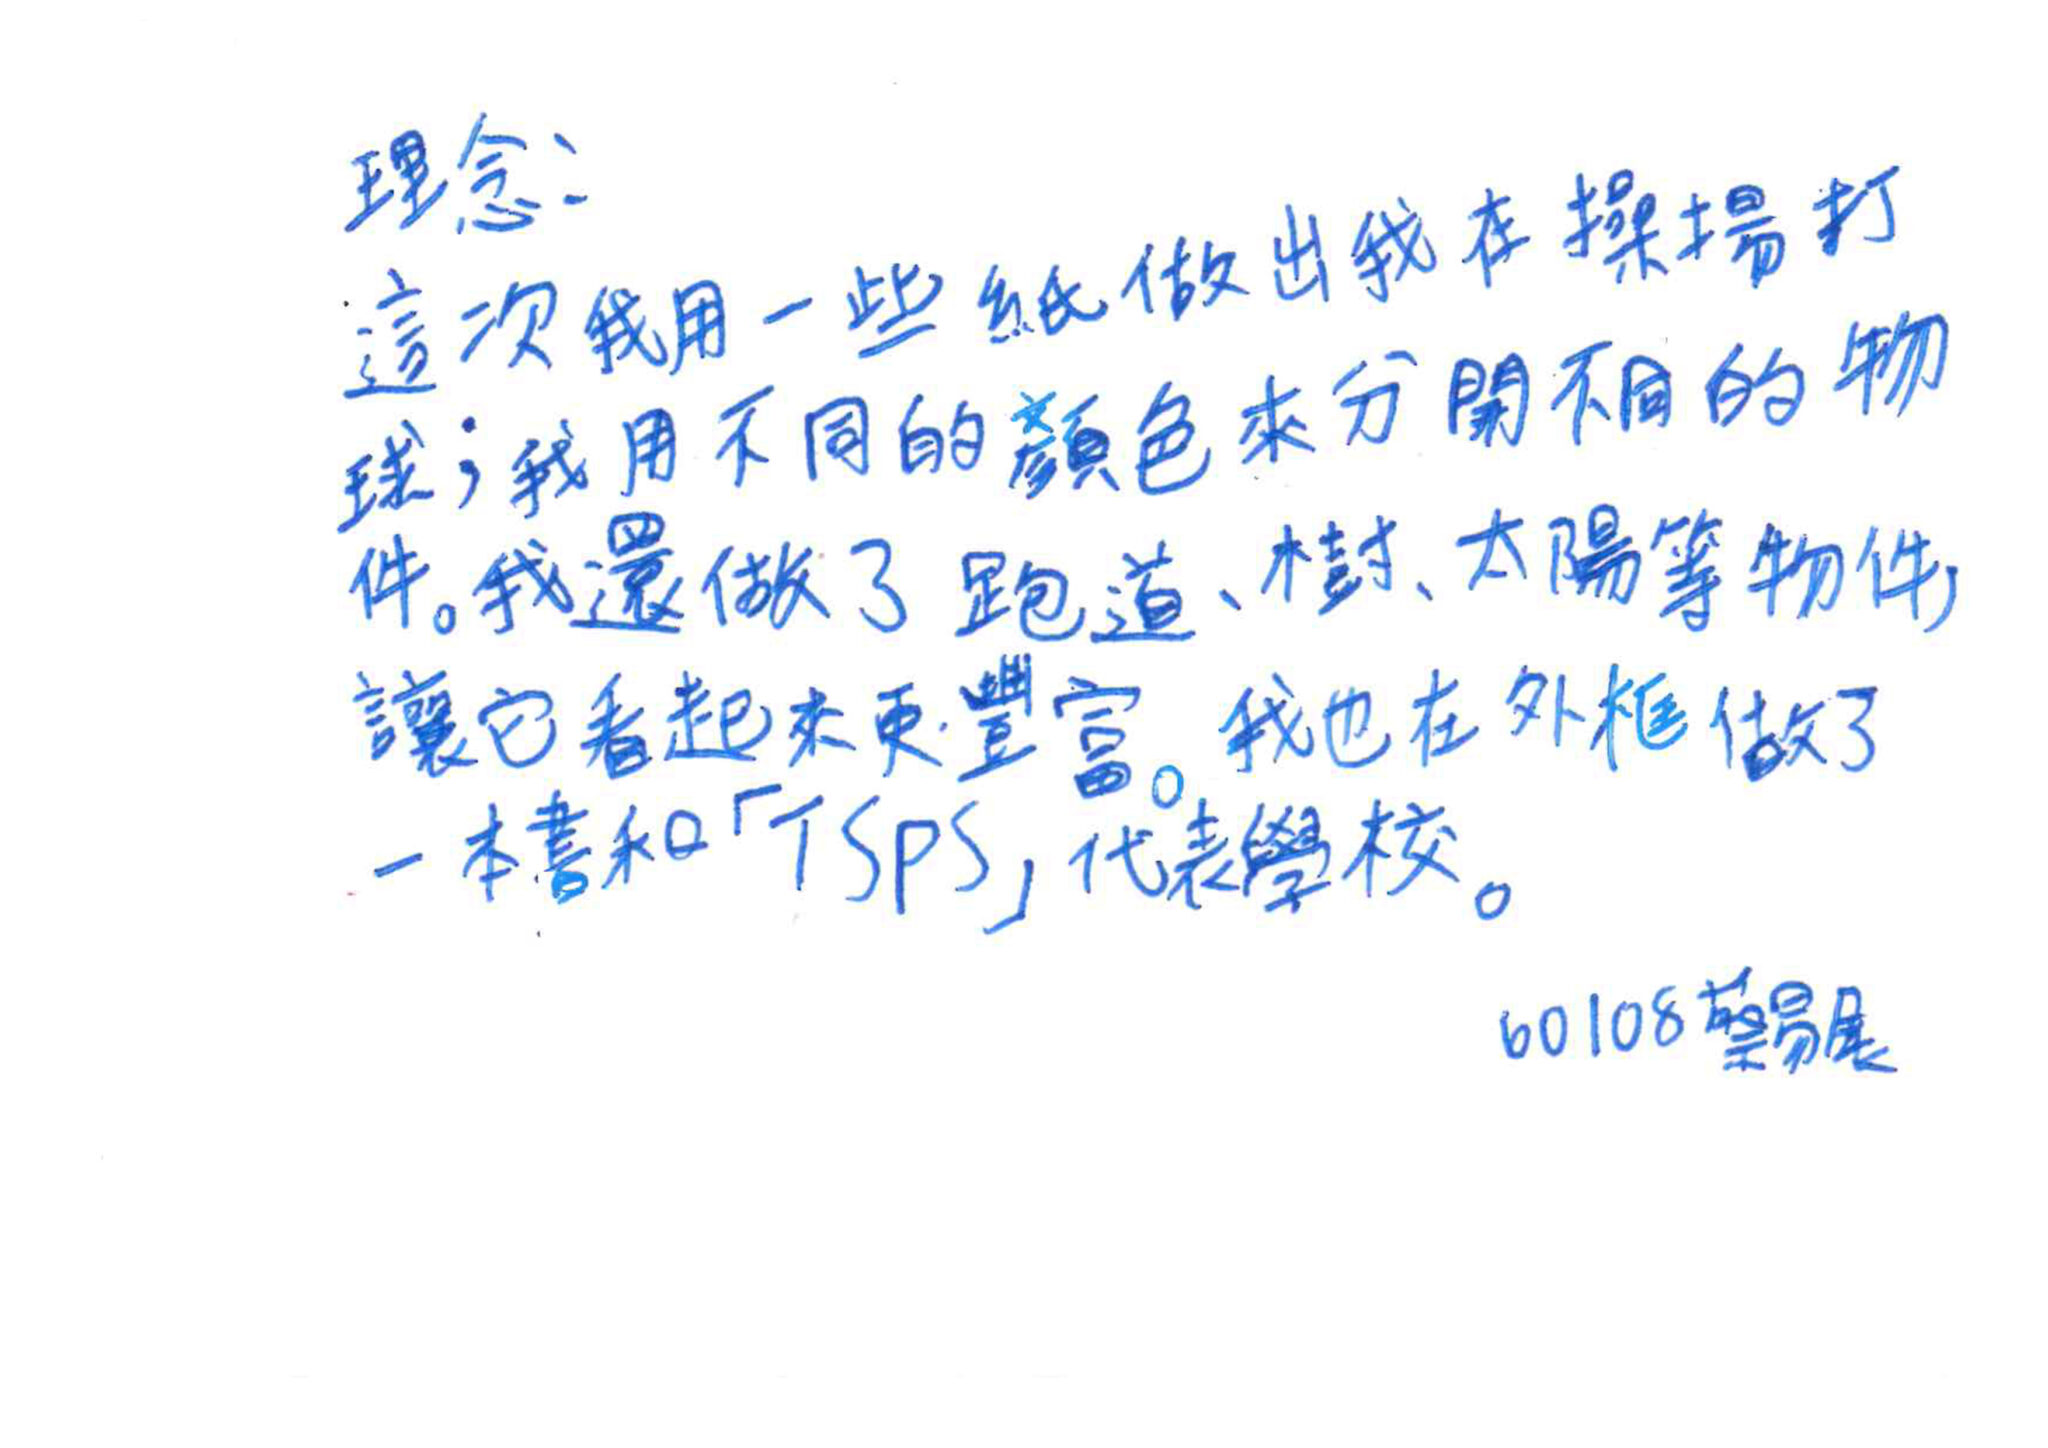 理念：
這次我用一些紙做出我在操場打
球；我用不同的顏色來分開不同的物
件。我還做了跑道、樹、太陽等物件，
讓它看起來更豐富。我也在外框做了
一本書和「TSPS」代表學校。
60108蔡易展